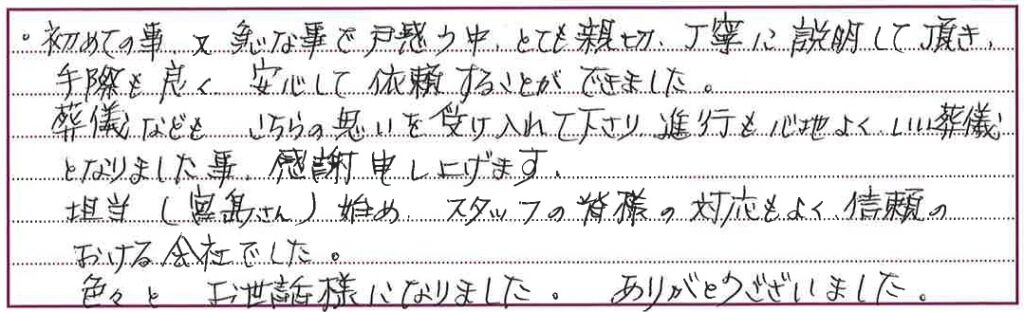 ・初めての事、又 急な事で戸惑う中、とても親切、丁寧に説明して頂き、
手際も良く、安心して依頼することができました。
葬儀なども こちらの思いを受け入れて下さり 進行も心地よく、いい葬儀
となりました事、感謝申し上げます。
担当（宮島さん）始め、スタッフの皆様の対応もよく、信頼の
おける会社でした。
色々と お世話様になりました。 ありがとうございました。